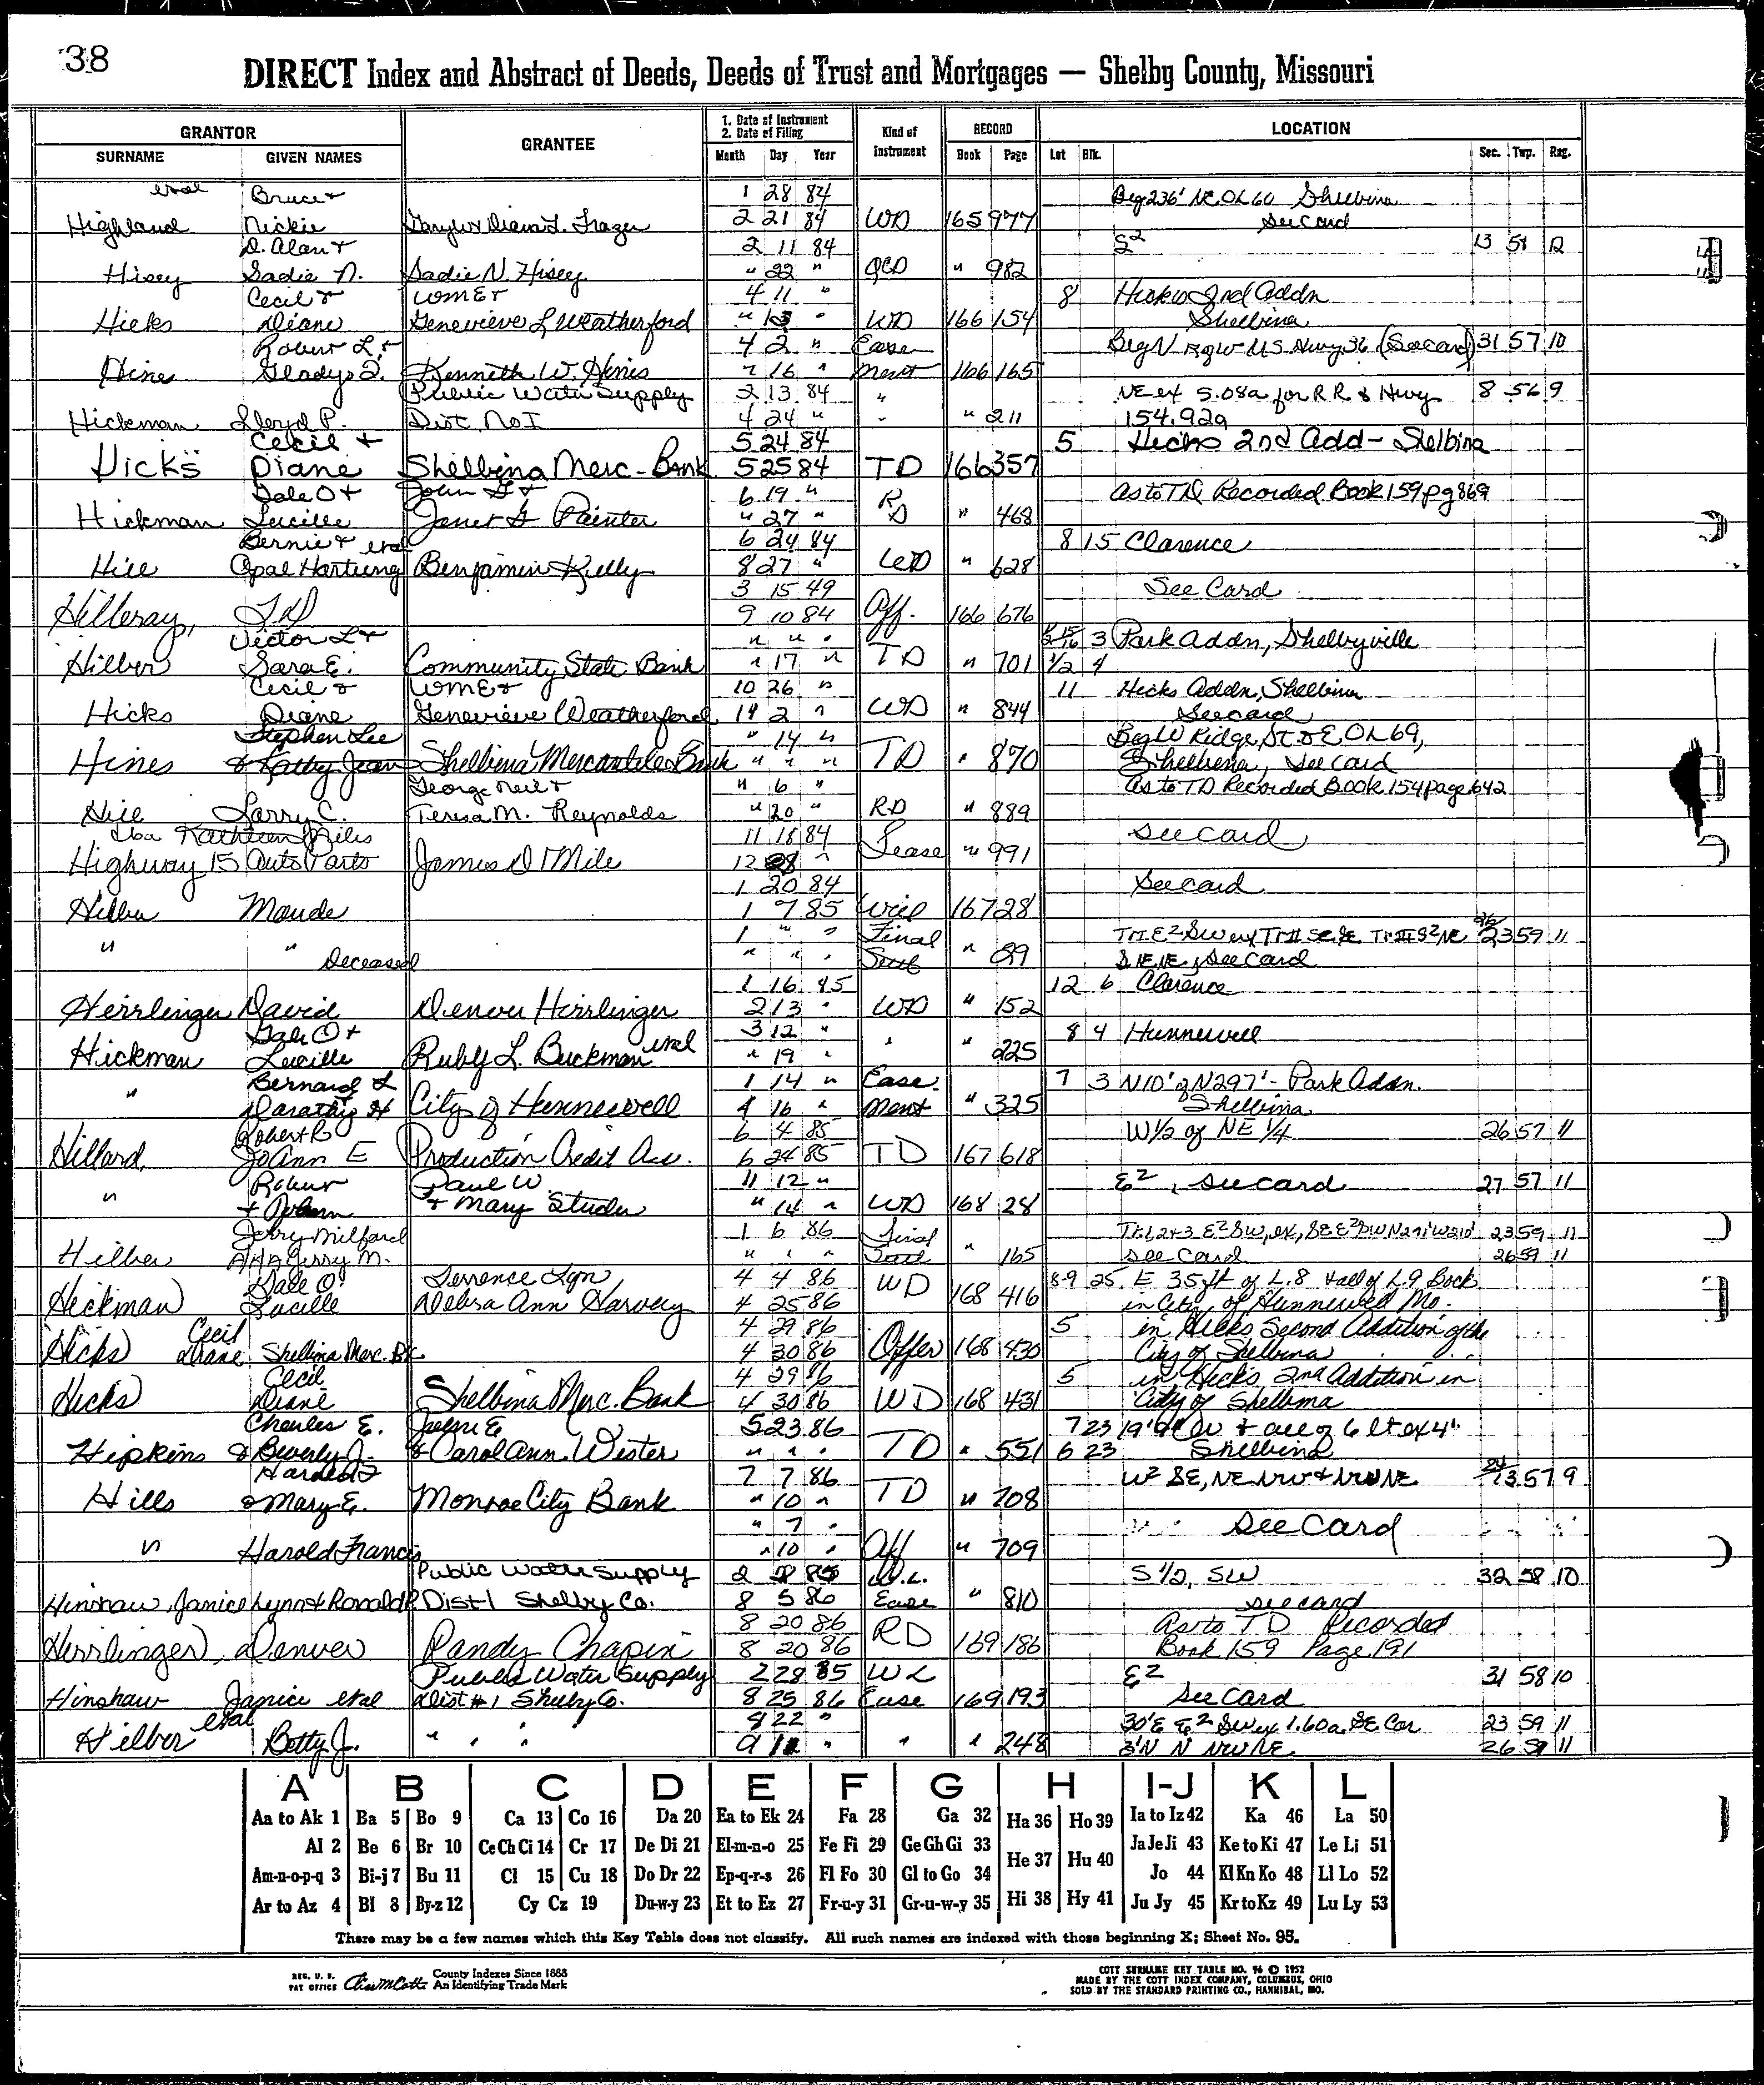 38
DIRECT Index and Abstract of Deeds, Deeds of Trust and Mortgages — Shelby County, Missouri
GRANTOR GRANTEE 1. Date of Instrument 2. Date of Filing Kind of Instrument RECORD LOCATION
SURNAME GIVEN NAMES Month Day Year Book Page Lot Blk. Sec. Twp. Rng.
etal Bruce + 1 28 84 Beg 236' NE OL 60 Shelbina
Highland Nickie 2 21 84 WD 165 977 See Card
D. Alan + 2 11 84 S2 13 58 12
Hisey Sadie N. Sadie N. Hisey " 22 " QCD " 982
Cecil + Wm E + 4 11 " 8 Hicks 2nd Addn
Hicks Diane Genevieve L Weatherford " 13 " WD 166 154 Shelbina
Robert L. + 4 2 " Ease Beg N RgW US Hwy 36 (See card) 31 57 10
Hine Gladys I. Kenneth W. Hines " 16 " ment 166 165
Public Water Supply 2 13 84 " NE ex 5.08a for RR & Hwy 8 56 9
Hickman Lloyd P. Dist. No I 4 24 " " 211 154.92a
Cecil + 5 24 84 5 Hicks 2nd Add - Shelbina
Hicks Diane Shelbina Merc - Bank 5 25 84 TD 166 357
Dale O + John G + 6 19 " R As to TD Recorded Book 159 pg 869
Hickman Lucille Janet G Painter " 27 " D " 468
Bernie + etal 6 24 84 8 15 Clarence
Hill Opal Hartung Benjamin Kelly 8 27 " WD " 628
3 15 49 See Card
Hilleray, T D 9 10 84 Aff. 166 676
Victor L + " " " 3 Park Addn, Shelbyville
Hilber Sara E. Community State Bank " 17 " TD " 701 1/2 4
Cecil & Wm E + 10 26 " 11 Hicks Addn, Shelbina
Hicks Diane Genevieve Weatherford 14 2 " WD " 844 See card
Stephen Lee " 14 " Beg W Ridge St & E OL 69,
Hines & Kathy Jean Shelbina Mercantile Bank " " " TD " 870 Shelbina, See card
George Neil + " 6 " As to TD Recorded Book 154 page 642
Hill Larry C. Teresa M. Reynolds " 20 " RD " 889
dba Kathleen Miles 11 18 84 See card
Highway 15 Auto Parts James D Mile 12 28 " Lease " 991
1 20 84 See card
Hilber Maude 1 7 85 Will 167 28
1 " " Final 23 59 11
" " Deceased " " " Sett " 29 See Card
1 16 85 12 6 Clarence
Herrlinger David Denver Herrlinger 2 13 " WD " 152
Dale O + 3 12 " 8 4 Hunnewell
Hickman Lucille Ruby L. Buckman etal " 19 " " " 225
Bernard L 1 14 " Ease. 7 3 N10' of N297' - Park Addn.
" Dorothy H City of Hunnewell 4 16 " ment " 325 Shelbina
Robert R 6 4 85 W 1/2 of NE 1/4 26 57 11
Hillard, JoAnn E Production Credit Ass. 6 24 85 TD 167 618
Robert Paul W. 11 12 " E2, See card 27 57 11
" + JoAnn + Mary Studer " 14 " WD 168 28
Jerry Milford 1 6 86 Final 23 59 11
Hilber AKA Jerry M. " " " Sett " 165 See Card 26 59 11
Dale O Terrence Lyn 4 4 86 WD 8-9 25 E 35 ft of L.8 & all of L.9 Bock
Hickman Lucille Debra Ann Harvery 4 25 86 168 416 in City of Hunnewell Mo.
Cecil 4 29 86 5 in Hicks Second Addition of the
Hicks Diane Shelbina Merc. Bk 4 30 86 Offer 168 430 City of Shelbina
Cecil 4 29 86 5 in Hicks 2nd Addition in
Hicks Diane Shelbina Merc. Bank 4 30 86 WD 168 431 City of Shelbina
Charles E. 5 23 86 7 23 19'9" W & all of 6 lt ex 4"
Hipkins & Beverly J. & Carol Ann Wester " " " TD " 551 6 23 Shelbina
Harold F 7 7 86 W2 SE, NE NW & NW NE 24 13 57 9
Hills & Mary E. Monroe City Bank " 10 " TD " 708
" 7 " See Card
" Harold Francis " 10 " Aff " 709
Public Water Supply W.L. S 1/2, SW 32 58 10
Hinshaw, Janice Lynn & Ronald R Dist 1 Shelby Co. 8 5 86 Ease " 810 see card
8 20 86 As to TD Recorded
Herrlinger, Denver Randy Chapin 8 20 86 RD 169 186 Book 159 Page 191
Public Water Supply 2 28 85 WL E2 31 58 10
Hinshaw Janice etal Dist #1 Shelby Co. 8 25 86 Ease 169 193 See Card
etal 8 22 " 30' E E2 SW ex 1.60a SE Cor 23 59 11
Hilber Betty J. " " " 9 " " " 248 3' N N NW NE 26 59 11
A B C D E F G H I-J K L
Aa to Ak 1 Ba 5 Bo 9 Ca 13 Co 16 Da 20 Ea to Ek 24 Fa 28 Ga 32 Ha 36 Ho 39 Ia to Iz 42 Ka 46 La 50
Al 2 Be 6 Br 10 Ce Ch Ci 14 Cr 17 De Di 21 El-m-n-o 25 Fe Fi 29 Ge Gh Gi 33 He 37 Hu 40 Ja Je Ji 43 Ke to Ki 47 Le Li 51
Am-n-o-p-q 3 Bi-j 7 Bu 11 Cl 15 Cu 18 Do Dr 22 Ep-q-r-s 26 Fl Fo 30 Gl to Go 34 Jo 44 Kl Kn Ko 48 Ll Lo 52
Ar to Az 4 Bl 8 By-z 12 Cy Cz 19 Du-w-y 23 Et to Ez 27 Fr-u-y 31 Gr-u-w-y 35 Hi 38 Hy 41 Ju Jy 45 Kr to Kz 49 Lu Ly 53
There may be a few names which this Key Table does not classify. All such names are indexed with those beginning X; Sheet No. 95.
REG. U. S. PAT OFFICE County Indexes Since 1888 An Identifying Trade Mark
COTT SURNAME KEY TABLE NO. 96 © 1952
MADE BY THE COTT INDEX COMPANY, COLUMBUS, OHIO
SOLD BY THE STANDARD PRINTING CO., HANNIBAL, MO.